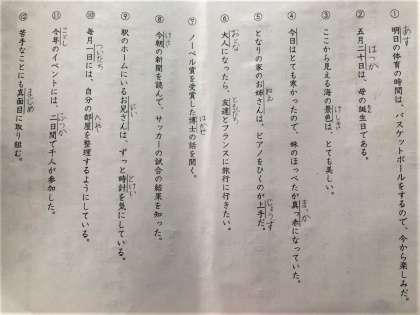 あす
① 明日の体育の時間は、バスケットボールをするので、今から楽しみだ。
はつか
② 五月二十日は、母の誕生日である。
けしき
③ ここから見える海の景色は、とても美しい。
まっか
④ 今日はとても寒かったので、妹のほっぺたが真っ赤になっていた。
ねえ じょうず
⑤ となりの家のお姉さんは、ピアノをひくのが上手だ。
おとな ともだち
⑥ 大人になったら、友達とフランスに旅行に行きたい。
はかせ
⑦ ノーベル賞を受賞した博士の話を聞く。
けさ
⑧ 今朝の新聞を読んで、サッカーの試合の結果を知った。
にい とけい
⑨ 駅のホームにいるお兄さんは、ずっと時計を気にしている。
ついたち へや
⑩ 毎月一日には、自分の部屋を整理するようにしている。
ことし ふつか
⑪ 今年のイベントには、二日間で千人が参加した。
まじめ
⑫ 苦手なことにも真面目に取り組む。